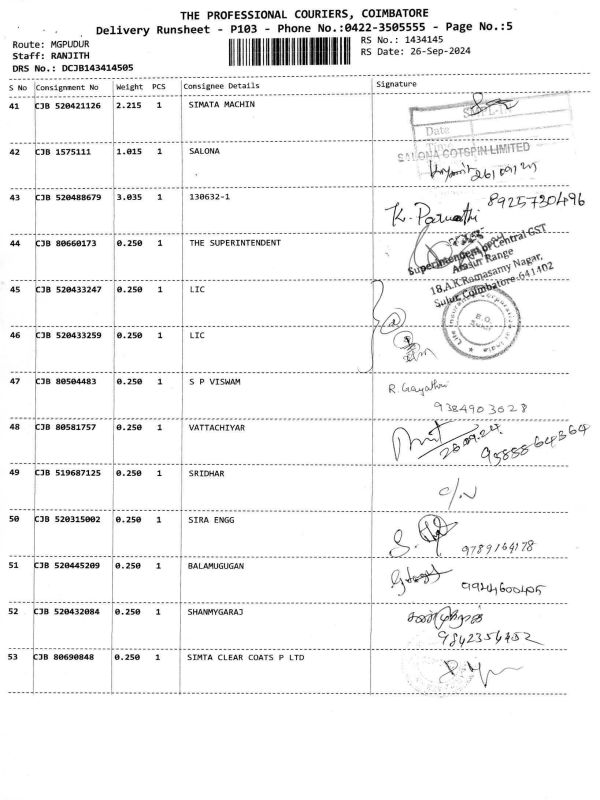 THE PROFESSIONAL COURIERS, COIMBATORE
Delivery Runsheet - P103 - Phone No.:0422-3505555 - Page No.:5
Route: MGPUDUR
RS No.: 1434145
Staff: RANJITH
RS Date: 26-Sep-2024
DRS No.: DCJB143414505
S No Consignment No Weight PCS Consignee Details Signature
41 CJB 520421126 2.215 1 SIMATA MACHIN
Date
42 CJB 1575111 1.015 1 SALONA
SALONA COTSPIN LIMITED
43 CJB 520488679 3.035 1 130632-1
8925730496
K. Parvathi
44 CJB 80660173 0.250 1 THE SUPERINTENDENT
Superintendent of Central GST
Arasur Range
18,A.K.Ramasamy Nagar,
Sulur, Coimbatore-641402
45 CJB 520433247 0.250 1 LIC
Life Insurance Corporation of India
B.O.
Sulur
46 CJB 520433259 0.250 1 LIC
47 CJB 80504483 0.250 1 S P VISWAM
R. Gayathri
9384903628
48 CJB 80581757 0.250 1 VATTACHIYAR
26.09.24
9588864364
49 CJB 519687125 0.250 1 SRIDHAR
50 CJB 520315002 0.250 1 SIRA ENGG
9789164178
51 CJB 520445209 0.250 1 BALAMUGUGAN
9924600405
52 CJB 520432084 0.250 1 SHANMYGARAJ
9842356452
53 CJB 80690848 0.250 1 SIMTA CLEAR COATS P LTD